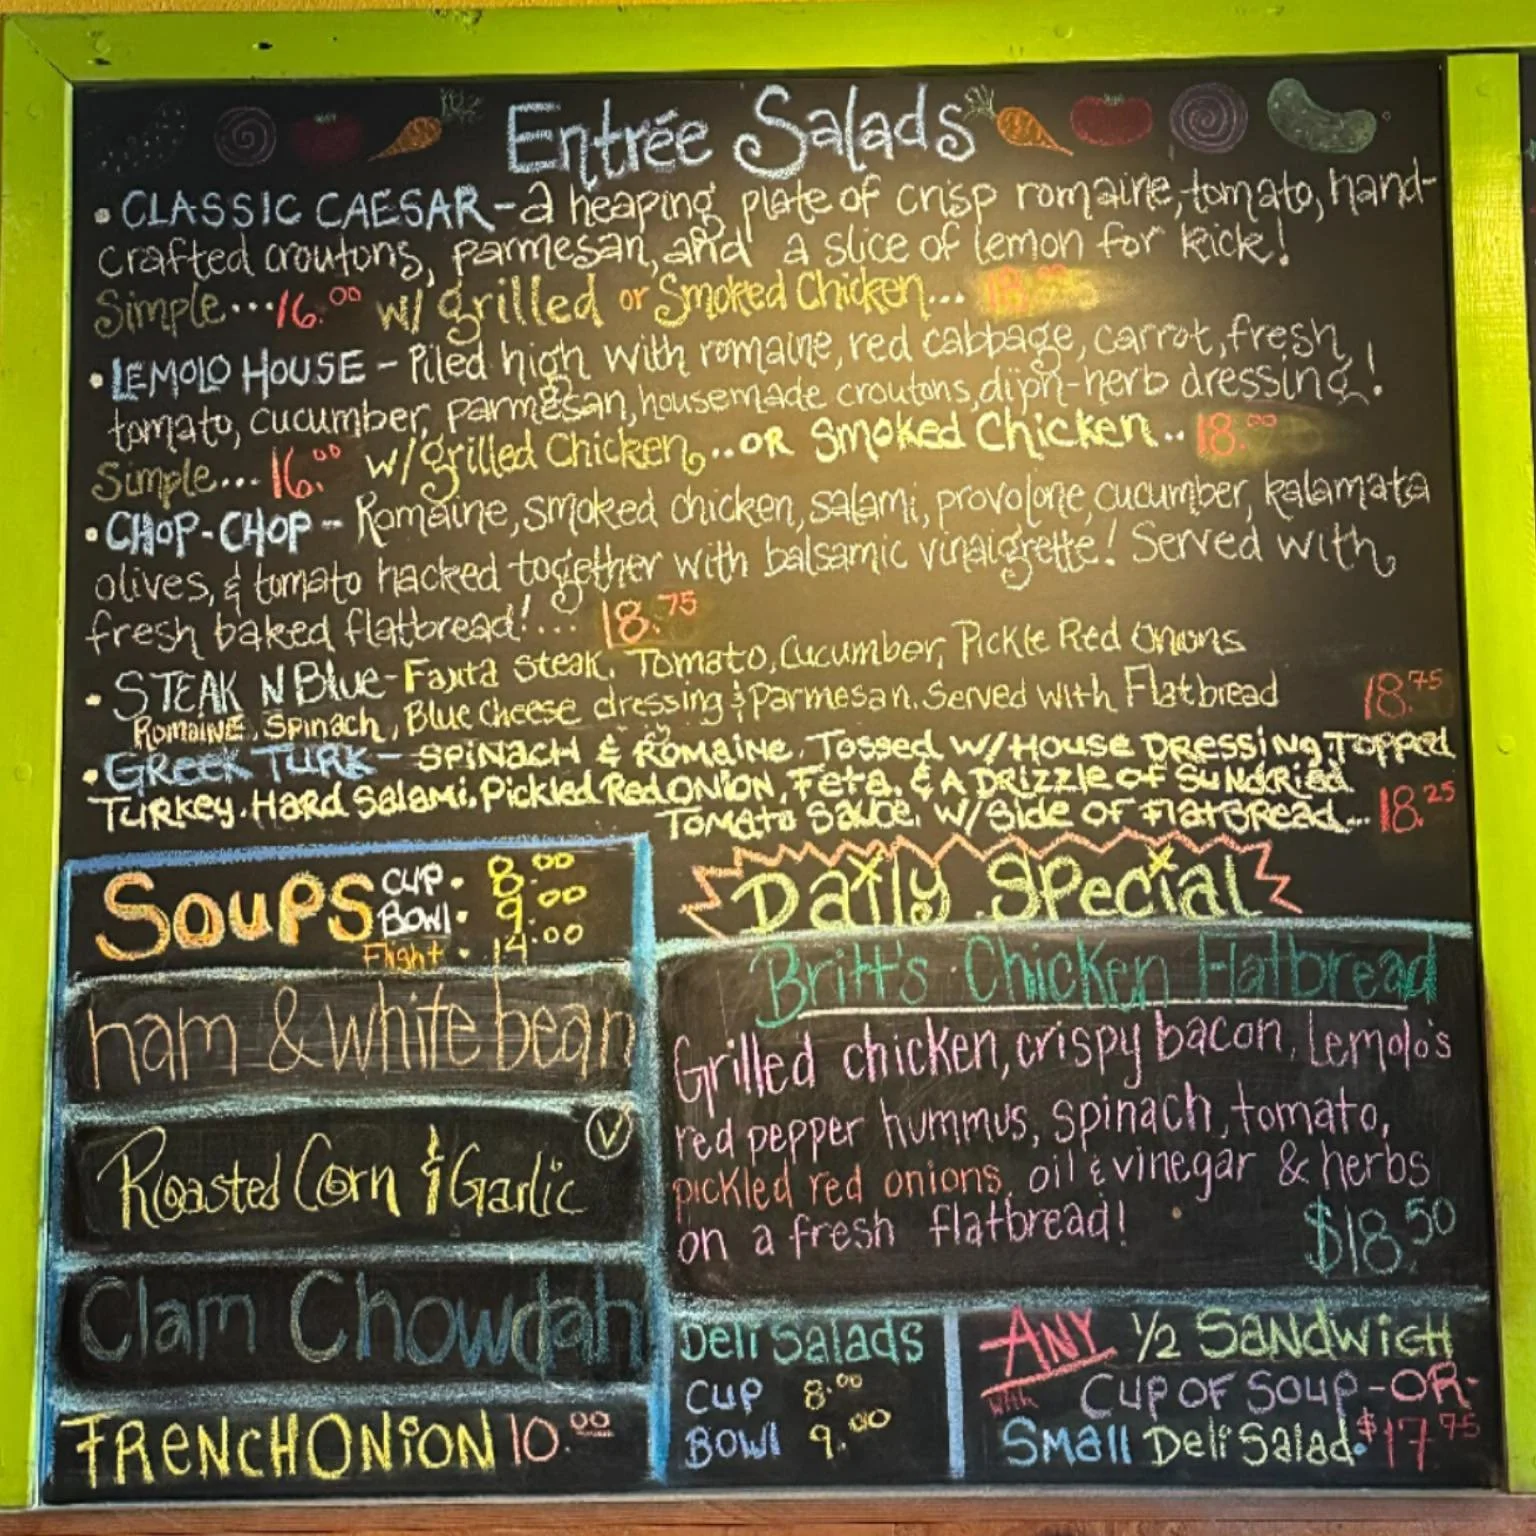 Entrée Salads
• CLASSIC CAESAR - a heaping plate of crisp romaine, tomato, hand-
crafted croutons, parmesan, and a slice of lemon for kick!
Simple... 16.00 w/ grilled or Smoked Chicken...
• LEMOLO HOUSE - Piled high with romaine, red cabbage, carrot, fresh
tomato, cucumber, parmesan, housemade croutons, dijon-herb dressing!
Simple... 16.00 w/ grilled Chicken... OR Smoked Chicken.. 18.00
• CHOP-CHOP -- Romaine, smoked chicken, salami, provolone, cucumber, kalamata
olives, & tomato hacked together with balsamic vinaigrette! Served with
fresh baked flatbread!... 18.75
• STEAK N Blue - Fajita steak, Tomato, Cucumber, Pickle Red Onions
Romaine, Spinach, Blue Cheese dressing & Parmesan. Served with Flatbread 18.75
• GREEK TURK - SPINACH & ROMAINE, Tossed w/ HOUSE DRESSiNg, Topped
Turkey. Hard Salami, Pickled Red ONION, Feta, & A Drizzle of SUNdried
Tomato Sauce, w/ Side of Flatbread... 18.25
Soups CUP. 8.00
BOWl. 9.00
Flight. 14.00
ham & white bean
Roasted Corn & Garlic V
Clam Chowdah
FRENCH ONiON 10.00
Daily Special
Britt's Chicken Flatbread
Grilled chicken, crispy bacon, Lemolo's
red pepper hummus, spinach, tomato,
pickled red onions, oil & vinegar & herbs
on a fresh flatbread! $18.50
Deli Salads
CUP 8.00
BOWl 9.00
ANY 1/2 SANDWICH
with CUP OF SOUP -OR-
SMAll Deli Salad. $17.75